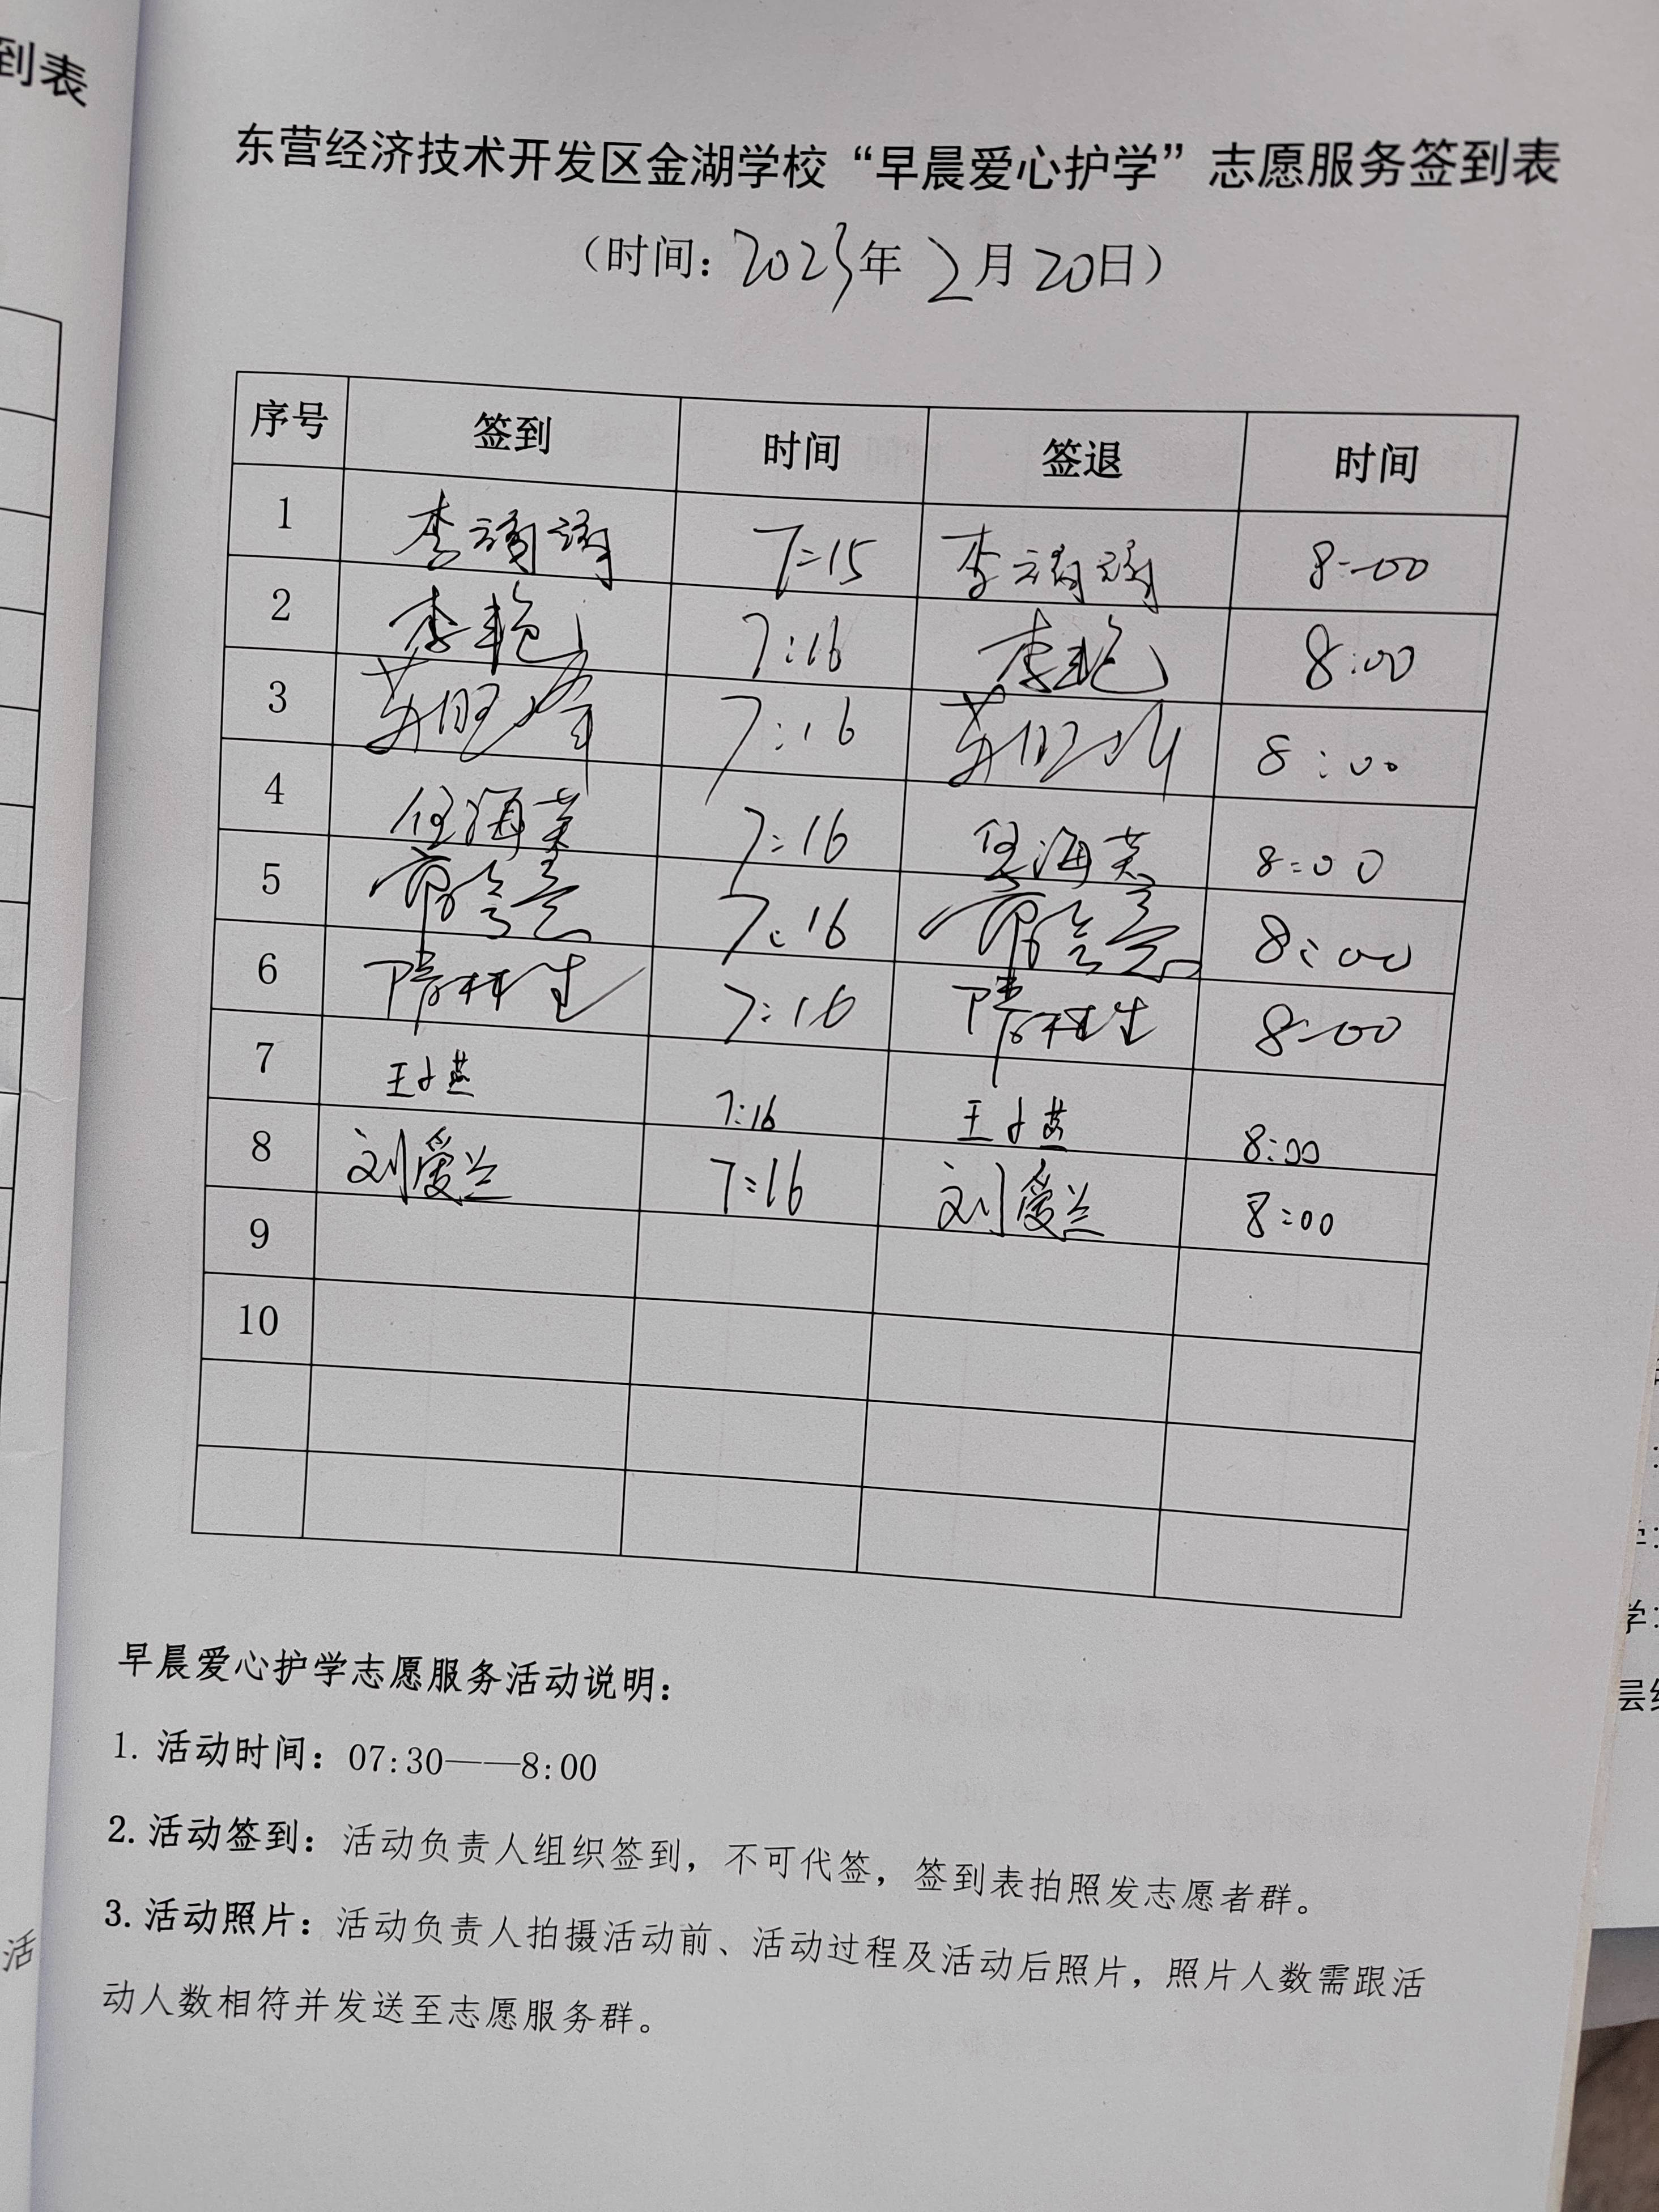 到表
东营经济技术开发区金湖学校“早晨爱心护学”志愿服务签到表
（时间：2023年 2月 20日）
序号 签到 时间 签退 时间
1 李 7:15 李 8:00
2 李艳 7:16 李艳 8:00
3 7:16 8:00
4 任海英 7:16 任海英 8:00
5 7:16 8:00
6 隋 生 7:16 隋 生 8:00
7 王 燕 7:16 王 燕 8:00
8 刘爱兰 7:16 刘爱兰 8:00
9
10
早晨爱心护学志愿服务活动说明：
1. 活动时间：07:30——8:00
2. 活动签到：活动负责人组织签到，不可代签，签到表拍照发志愿者群。
3. 活动照片：活动负责人拍摄活动前、活动过程及活动后照片，照片人数需跟活
动人数相符并发送至志愿服务群。
活
学：
层